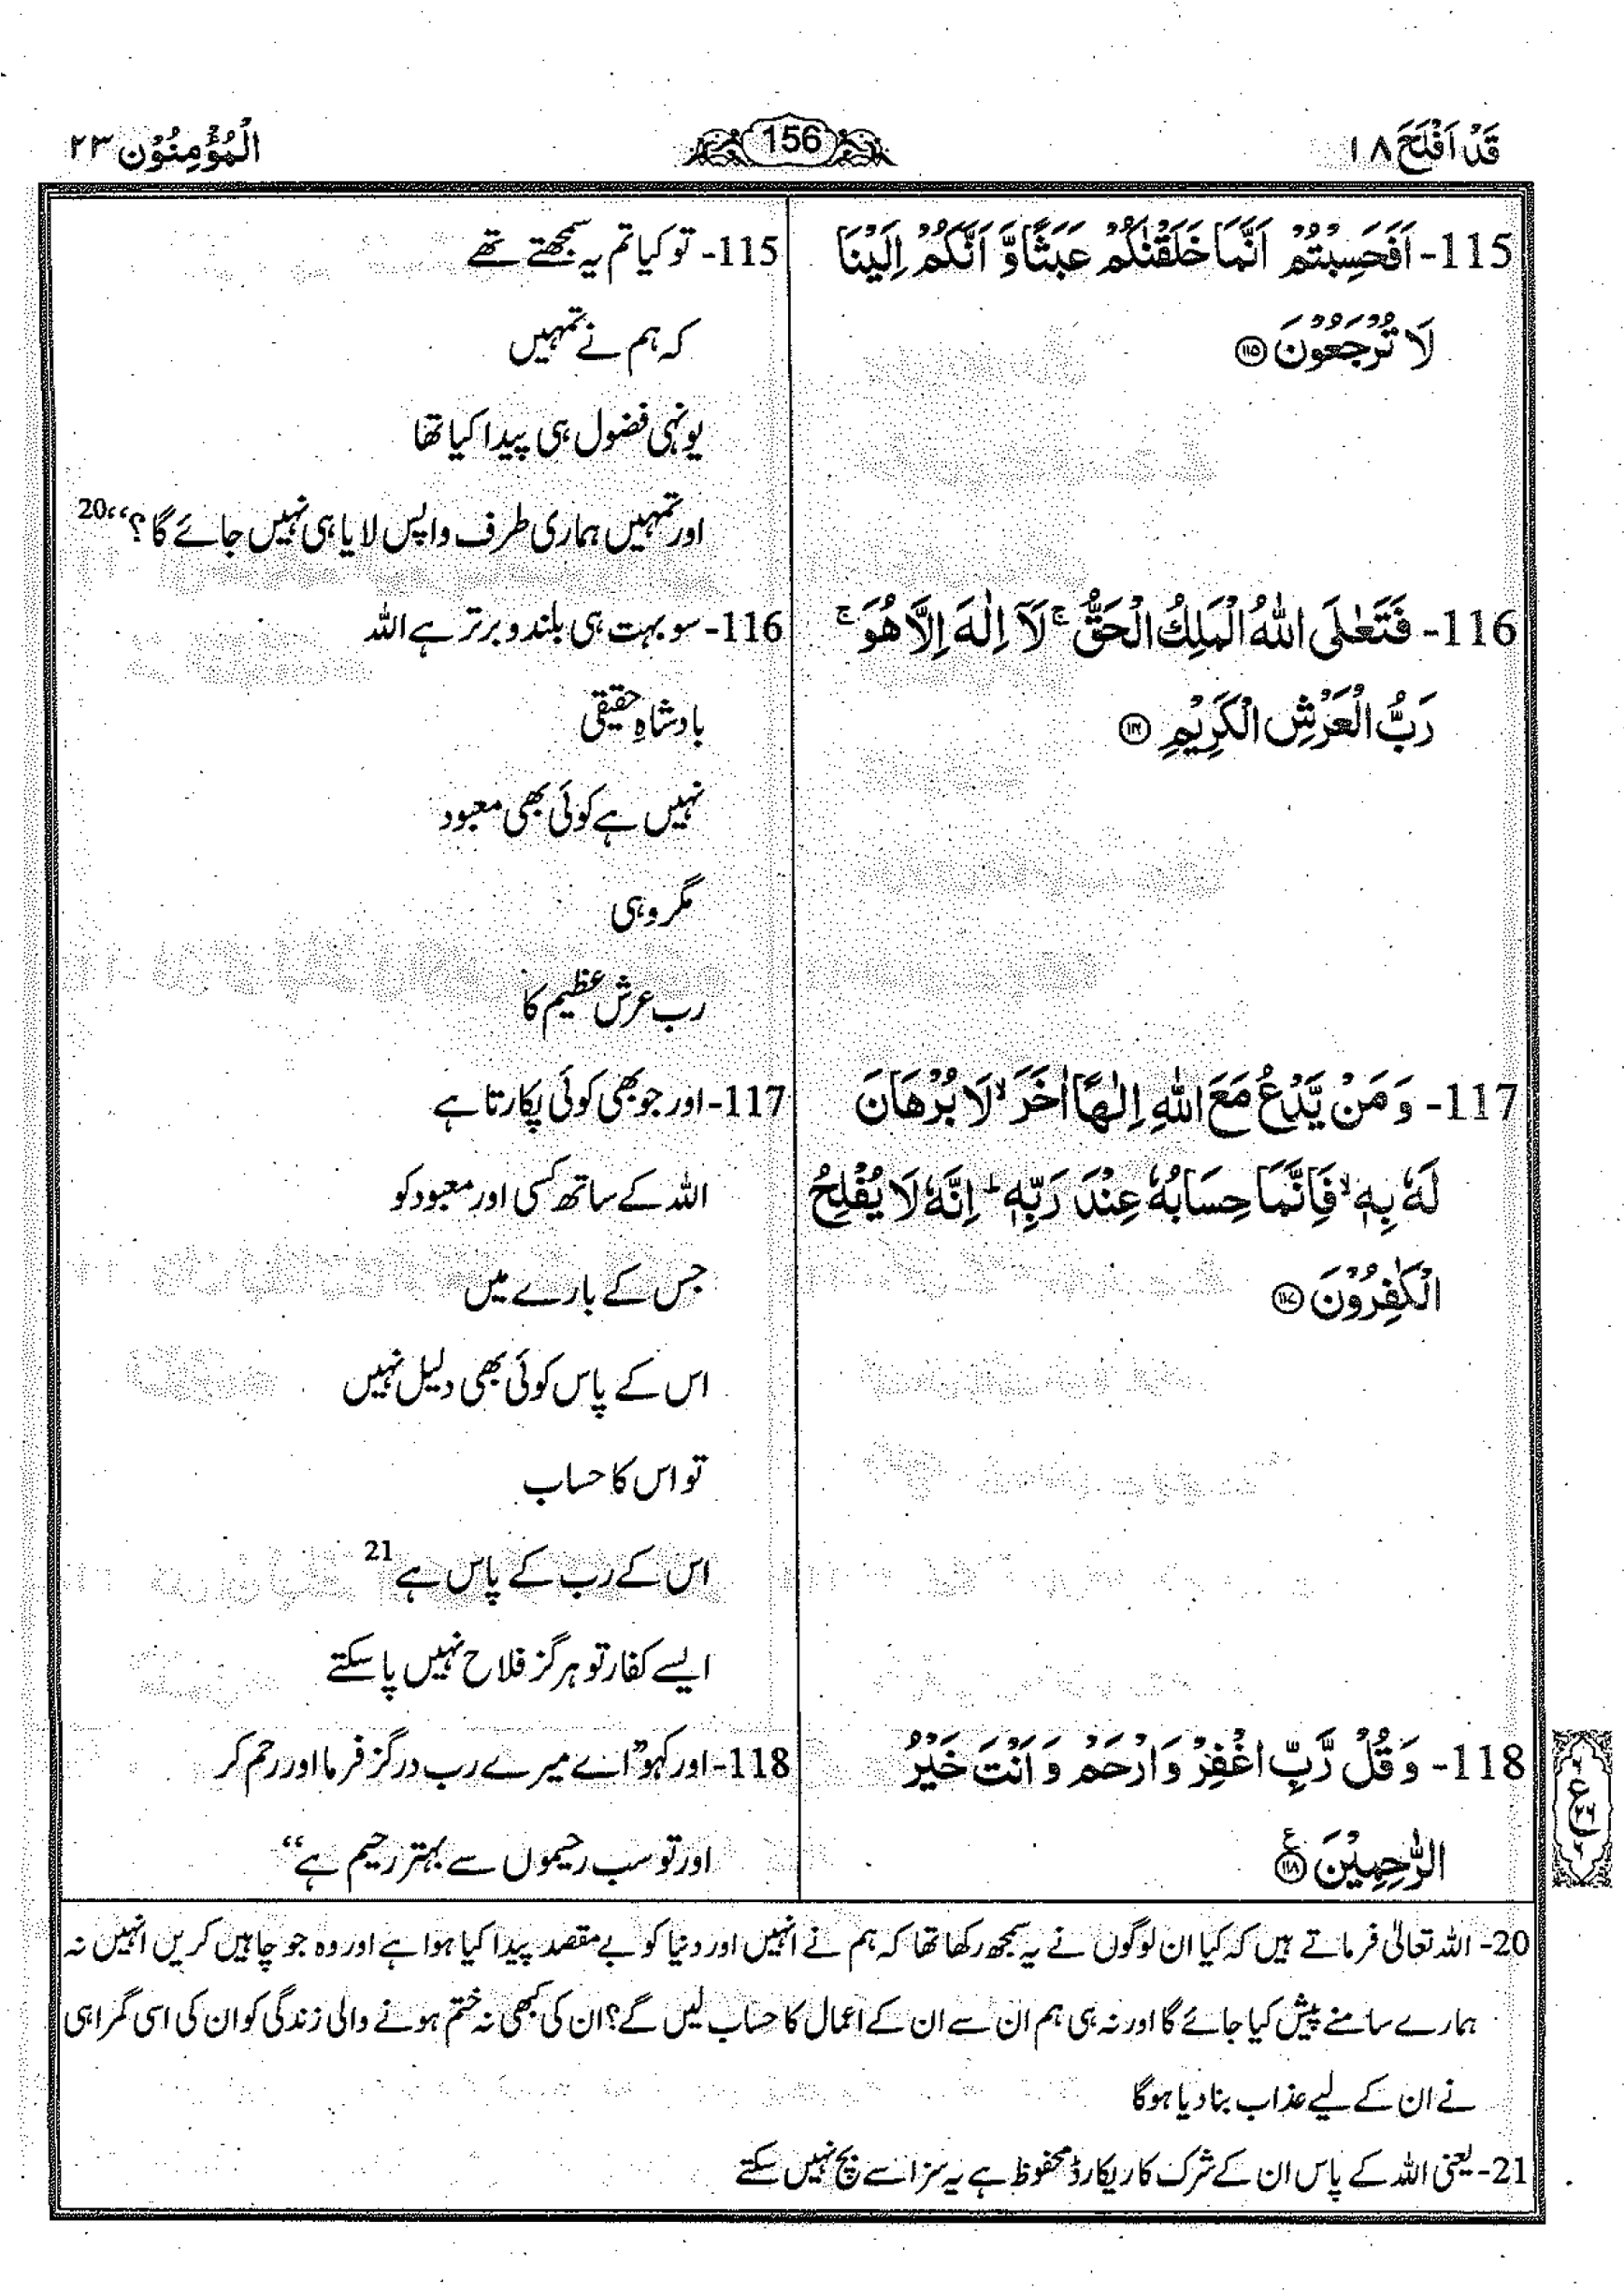 قَدْ اَفْلَحَ ۱۸
156
الْمُؤْمِنُوْن ۲۳
115- اَفَحَسِبْتُمْ اَنَّمَا خَلَقْنٰكُمْ عَبَثًا وَّ اَنَّكُمْ اِلَيْنَا
لَا تُرْجَعُوْنَ ﴿۱۱۵﴾
115- تو کیا تم یہ سمجھتے تھے
کہ ہم نے تمہیں
یونہی فضول ہی پیدا کیا تھا
اور تمہیں ہماری طرف واپس لایا ہی نہیں جائے گا؟“20
116- فَتَعٰلَى اللّٰهُ الْمَلِكُ الْحَقُّ ۚ لَاۤ اِلٰهَ اِلَّا هُوَ ۚ
رَبُّ الْعَرْشِ الْكَرِيْمِ ﴿۱۱۶﴾
116- سو بہت ہی بلند و برتر ہے اللہ
بادشاہِ حقیقی
نہیں ہے کوئی بھی معبود
مگر وہی
رب عرش عظیم کا
117- وَ مَنْ يَّدْعُ مَعَ اللّٰهِ اِلٰهًا اٰخَرَ ۙ لَا بُرْهَانَ
لَهٗ بِهٖ ۙ فَاِنَّمَا حِسَابُهٗ عِنْدَ رَبِّهٖ ؕ اِنَّهٗ لَا يُفْلِحُ
الْكٰفِرُوْنَ ﴿۱۱۷﴾
117- اور جو بھی کوئی پکارتا ہے
اللہ کے ساتھ کسی اور معبود کو
جس کے بارے میں
اس کے پاس کوئی بھی دلیل نہیں
تو اس کا حساب
اس کے رب کے پاس ہے 21
ایسے کفار تو ہرگز فلاح نہیں پا سکتے
118- وَ قُلْ رَّبِّ اغْفِرْ وَ ارْحَمْ وَ اَنْتَ خَيْرُ
الرّٰحِمِيْنَ ﴿۱۱۸﴾ ع
118- اور کہو ”اے میرے رب درگزر فرما اور رحم کر
اور تو سب رحیموں سے بہتر رحیم ہے“
ع
۲۶
20- اللہ تعالیٰ فرماتے ہیں کہ کیا ان لوگوں نے یہ سمجھ رکھا تھا کہ ہم نے انہیں اور دنیا کو بے مقصد پیدا کیا ہوا ہے اور وہ جو چاہیں کریں انہیں نہ
ہمارے سامنے پیش کیا جائے گا اور نہ ہی ہم ان سے ان کے اعمال کا حساب لیں گے؟ ان کی کبھی نہ ختم ہونے والی زندگی کو ان کی اسی گمراہی
نے ان کے لیے عذاب بنا دیا ہوگا
21- یعنی اللہ کے پاس ان کے شرک کا ریکارڈ محفوظ ہے یہ سزا سے بچ نہیں سکتے